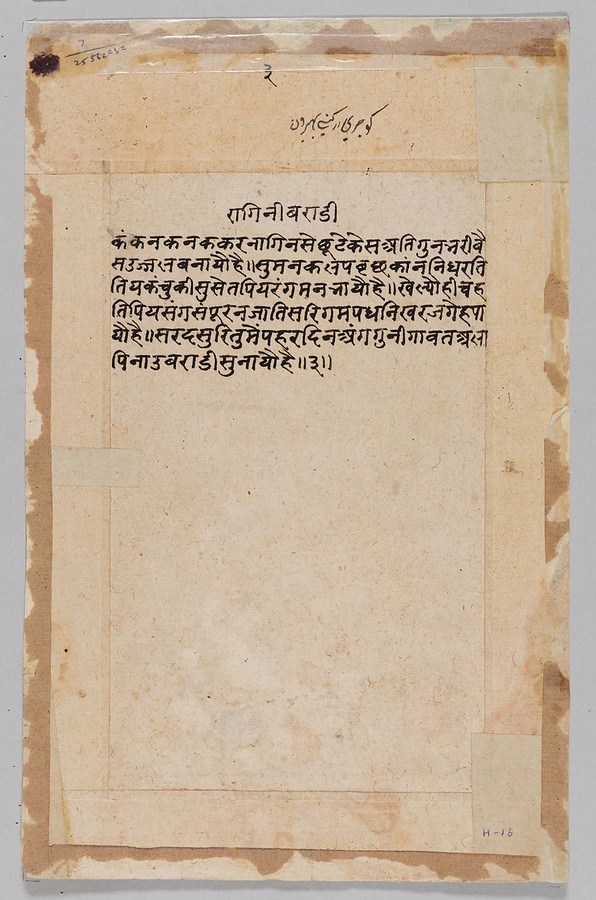 ३
रागिनीबराडी
कंकनकनककरनागिनसेछूटेकेसअतिगुनभरीवै
सउज्जलबनायौहै॥सुमनकलपवृछकाननिधरति
तियकंचुकीसुसेतपियरंगमनभायौहै॥खेल्यौहीचह
तिपियसंगसंपूरनजातिसरिगमपधनिखरजगेहपा
यौहै॥सरदसुरितुमैंपहरदिनअंगगुनीगावतअला
पिनाउबराडीसुनायौहै॥३॥
H-16